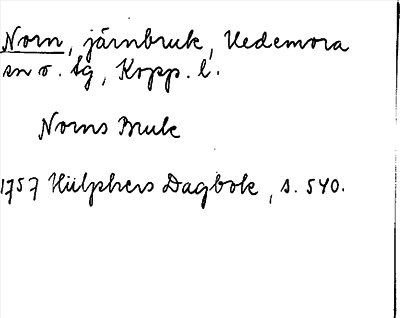 Norn, järnbruk, Hedemora
sn o. tg, Kopp. l.
Norns Bruk
1757 Hülphers Dagbok, s. 540.